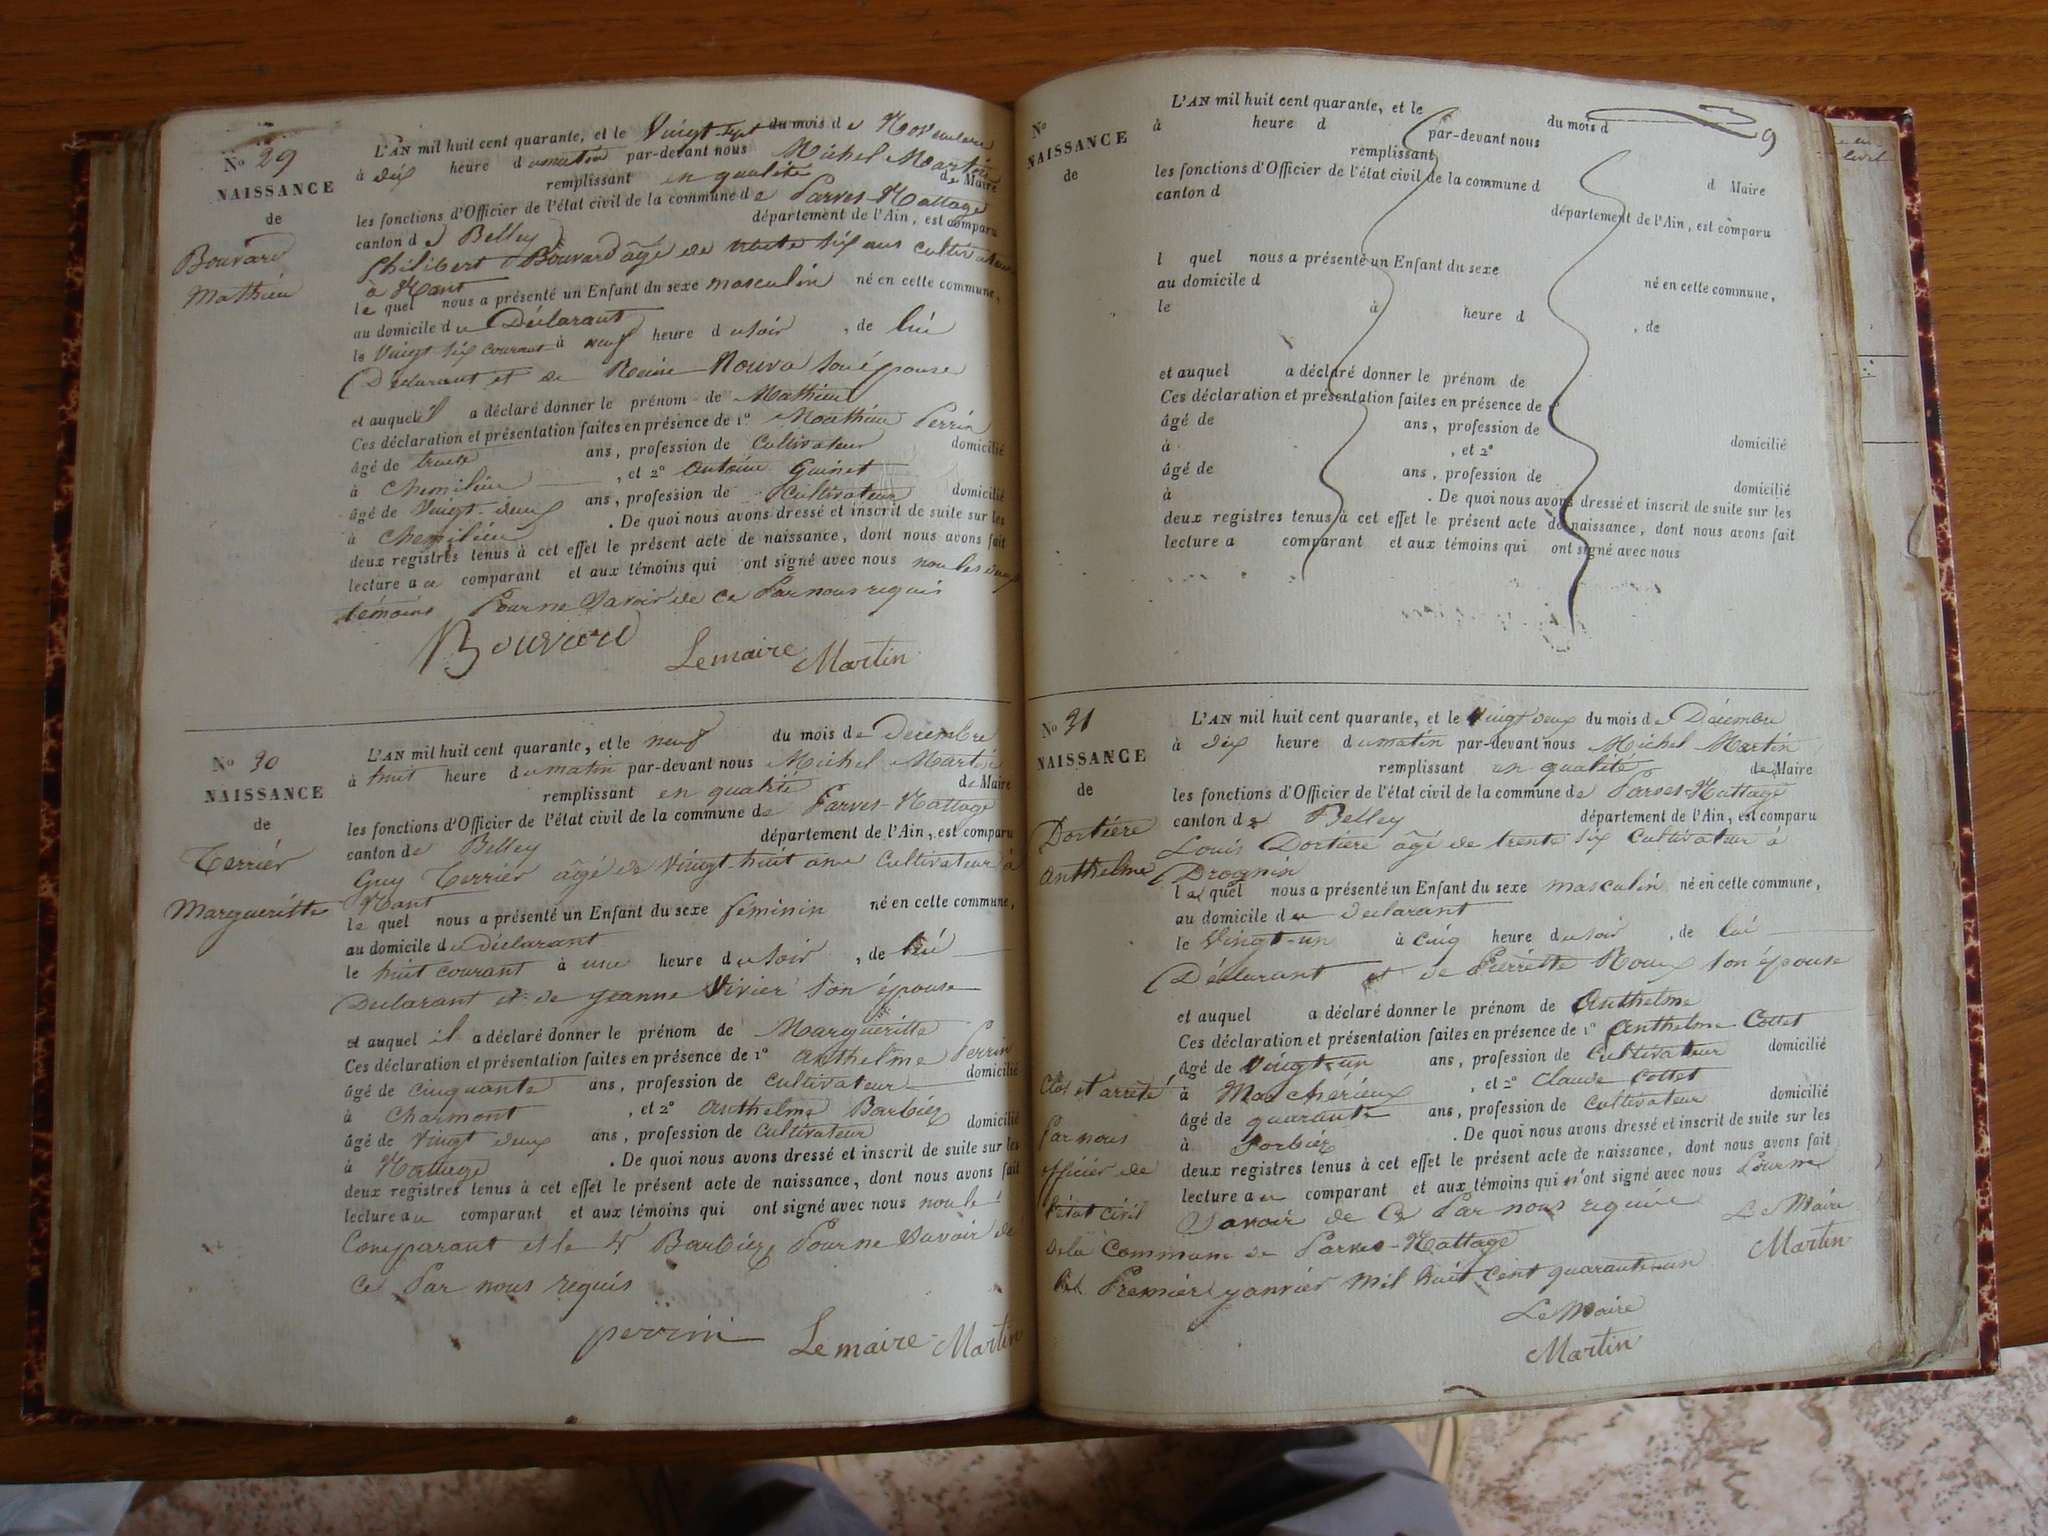 No 29
NAISSANCE
de
Bouvard
Mathieu
L'AN mil huit cent quarante, et le Vingt-sept du mois de Novembre
à dix heure du matin par-devant nous Michel Martin
remplissant en qualité de Maire
les fonctions d'Officier de l'état civil de la commune de Parves-Nattage
canton de Belley département de l'Ain, est comparu
Philibert Bouvard âgé de trente six ans cultivateur
à Nant
le quel nous a présenté un Enfant du sexe masculin né en cette commune,
au domicile du Déclarant
le Vingt six courant à neuf heure du soir, de lui
Déclarant et de Reine son épouse
et auquel il a déclaré donner le prénom de Mathieu
Ces déclaration et présentation faites en présence de 1º Mathieu Perrin
âgé de trente ans, profession de Cultivateur domicilié
à Chemilieu, et 2º Antoine Guinet
âgé de Vingt-deux ans, profession de Cultivateur domicilié
à Chemilieu. De quoi nous avons dressé et inscrit de suite sur les
deux registres tenus à cet effet le présent acte de naissance, dont nous avons fait
lecture au comparant et aux témoins qui ont signé avec nous non les deux
témoins Pour ne Savoir de ce Par nous requis
Bouvard
Le maire Martin
No 30
NAISSANCE
de
Terrier
Margueritte
L'AN mil huit cent quarante, et le neuf du mois de Decembre
à huit heure du matin par-devant nous Michel Martin
remplissant en qualité de Maire
les fonctions d'Officier de l'état civil de la commune de Parves-Nattage
canton de Belley département de l'Ain, est comparu
Guy Terrier âgé de Vingt-huit ans Cultivateur à
Nant
le quel nous a présenté un Enfant du sexe féminin né en cette commune,
au domicile du Déclarant
le huit courant à une heure du soir, de lui
Déclarant et de Jeanne Vivier son épouse
et auquel il a déclaré donner le prénom de Margueritte
Ces déclaration et présentation faites en présence de 1º Anthelme Perrin
âgé de cinquante ans, profession de cultivateur domicilié
à Charmont, et 2º Anthelme Barbier
âgé de Vingt deux ans, profession de Cultivateur domicilié
à Nattage. De quoi nous avons dressé et inscrit de suite sur les
deux registres tenus à cet effet le présent acte de naissance, dont nous avons fait
lecture au comparant et aux témoins qui ont signé avec nous non le
Comparant et le Sr Barbier Pour ne Savoir de
ce Par nous requis
perrin Le maire Martin
No
NAISSANCE
de
9
L'AN mil huit cent quarante, et le du mois d
à heure d par-devant nous
remplissant d Maire
les fonctions d'Officier de l'état civil de la commune d
canton d département de l'Ain, est comparu
l quel nous a présenté un Enfant du sexe né en cette commune,
au domicile d
le à heure d, de
et auquel a déclaré donner le prénom de
Ces déclaration et présentation faites en présence de 1º
âgé de ans, profession de domicilié
à, et 2º
âgé de ans, profession de domicilié
à. De quoi nous avons dressé et inscrit de suite sur les
deux registres tenus à cet effet le présent acte de naissance, dont nous avons fait
lecture a comparant et aux témoins qui ont signé avec nous
No 31
NAISSANCE
de
Dortière
Anthelme
L'AN mil huit cent quarante, et le Vingt deux du mois de Décembre
à dix heure du matin par-devant nous Michel Martin
remplissant en qualité de Maire
les fonctions d'Officier de l'état civil de la commune de Parves-Nattage
canton de Belley département de l'Ain, est comparu
Louis Dortière âgé de trente six Cultivateur à
Drognin
le quel nous a présenté un Enfant du sexe masculin né en cette commune,
au domicile du déclarant
le Vingt-un à cinq heure du soir, de lui
Déclarant et de Pierrette Roux son épouse
et auquel a déclaré donner le prénom de Anthelme
Ces déclaration et présentation faites en présence de 1º Anthelme Cottet
âgé de Vingt-un ans, profession de cultivateur domicilié
à, et 2º Claude Cottet
âgé de quarante ans, profession de cultivateur domicilié
à Sorbier. De quoi nous avons dressé et inscrit de suite sur les
deux registres tenus à cet effet le présent acte de naissance, dont nous avons fait
lecture au comparant et aux témoins qui n'ont signé avec nous Pour ne
Savoir de ce Par nous requis
Le Maire
Martin
Clos et arrêté
Par nous
officier de
l'état civil
de la Commune de Parves-Nattage
le Premier janvier mil huit cent quarante-un
Le Maire
Martin